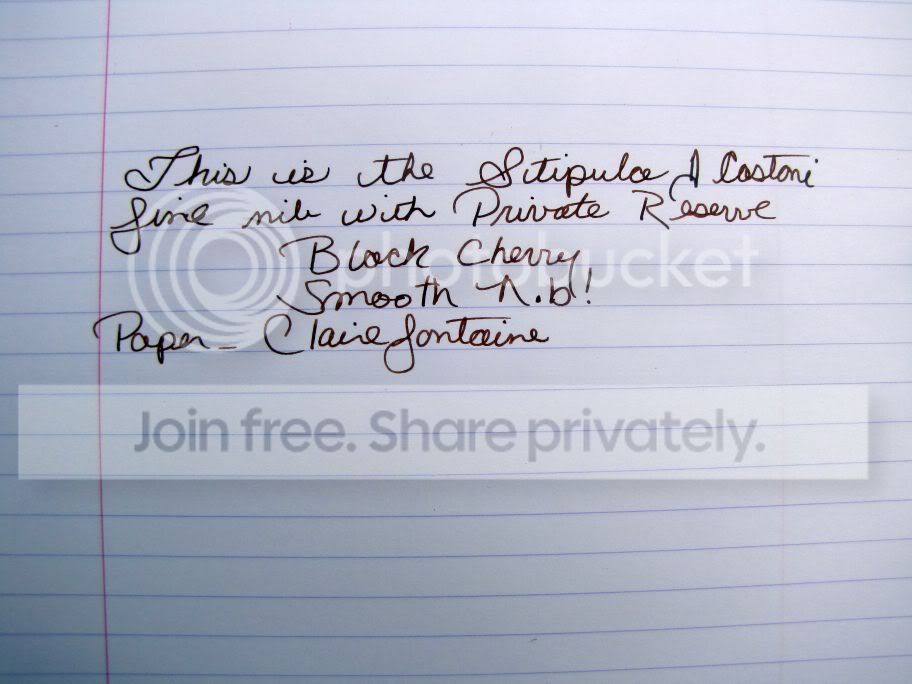 This is the Stipula I Castoni
fine nib with Private Reserve
Black Cherry
photobucket
Smooth Nib!
Paper - Clairefontaine
Join free. Share privately.